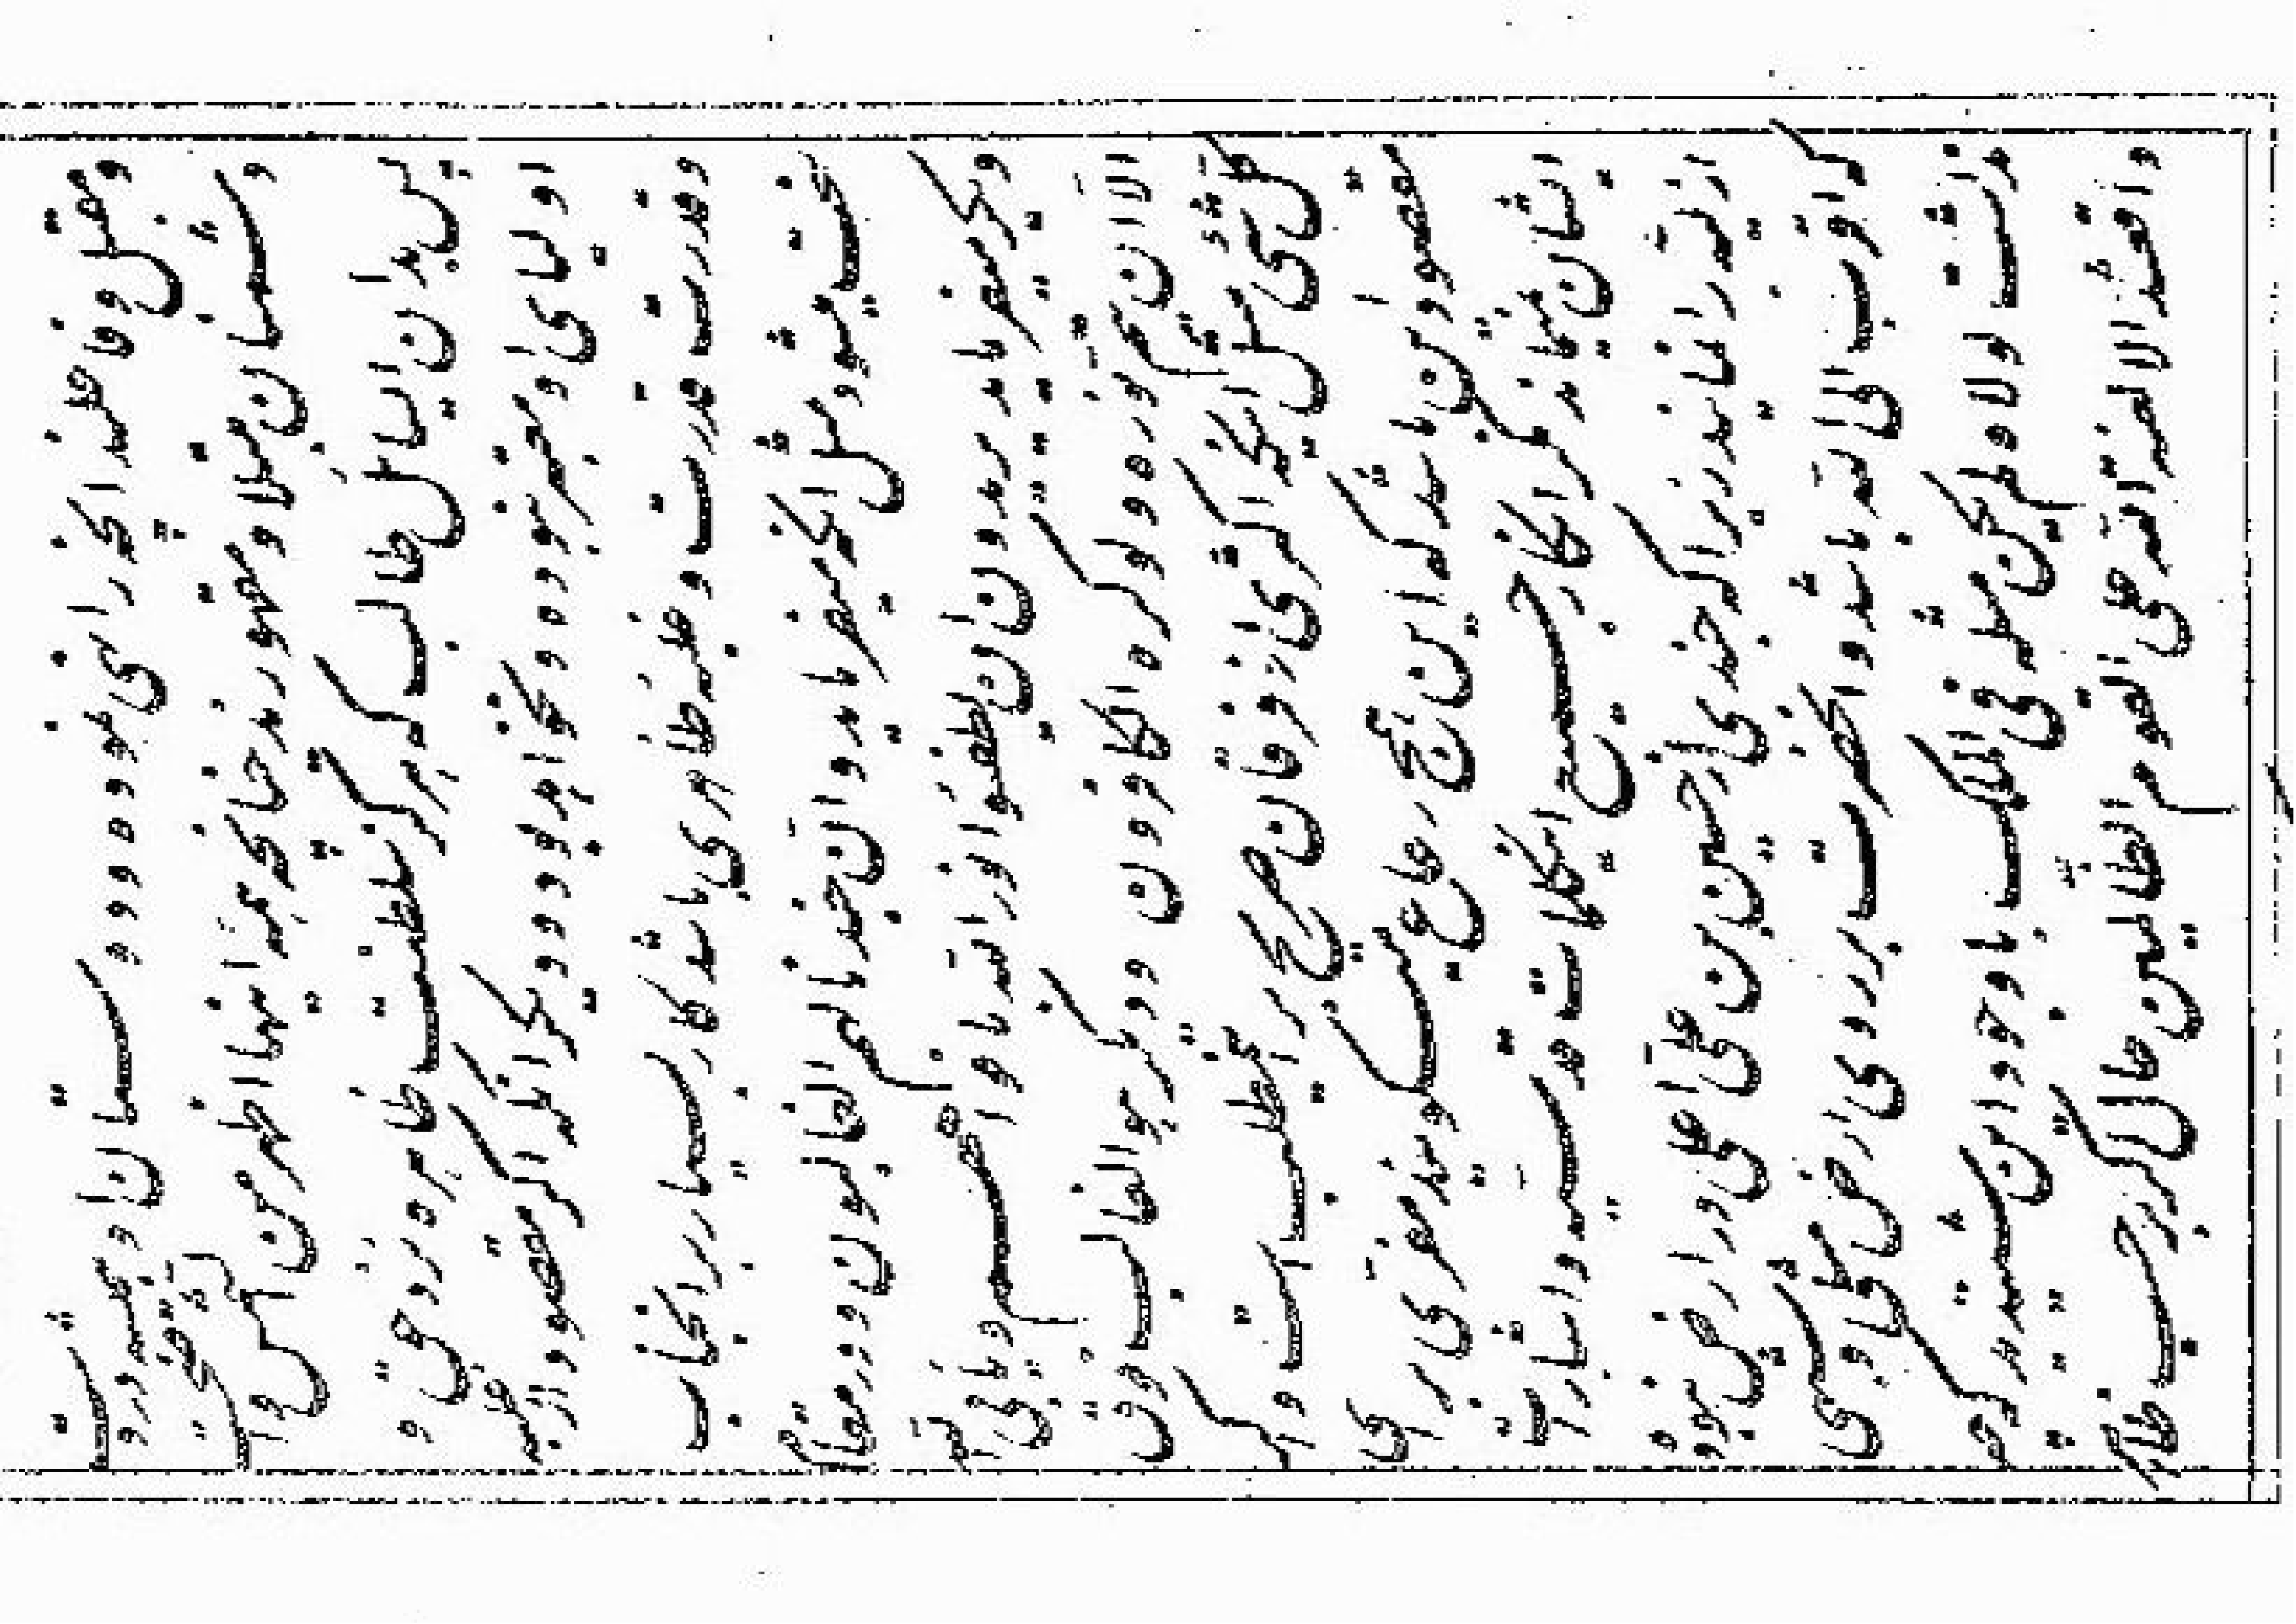 پس بدان ای سائل طالب که هرگز سلطنت ظاهره نزد حق و
اولیای او معتبر نبوده و نخواهد بود و دیگر آنکه اگر مقصود از غلبه
و قدرت قدرت و غلبه ظاهری باشد کار بسیار بر آنجناب
سخت میشود مثل اینکه میفرماید و ان جندنا لهم الغالبون و در مقام
دیگر میفرماید یریدون ان یطفئوا نور الله بافواههم و یأبی الله
الا ان یتم نوره ولو کره الکافرون و دیگر هو الغالب فوق
کل شیء مثل اینکه اکثری از فرقان صریح بر این مطلب است و اگر
مقصود این باشد که این همج رعاع میگویند مفری برای
ایشان نمیماند مگر انکار جمیع این کلمات قدسیه و اشارات
ازلیه را نمایند زیرا که جندی از حسین بن علی اعلی در ارض نبوده
که اقرب الی الله باشد و آنحضرت بر روی ارض مثلی و شبهی
نداشت لولاه لم یکن مثله فی الملک با وجود این شنیدید که چه
واقع شد الا لعنة الله علی القوم الظالمین حال اگر بر حسب ظاهر